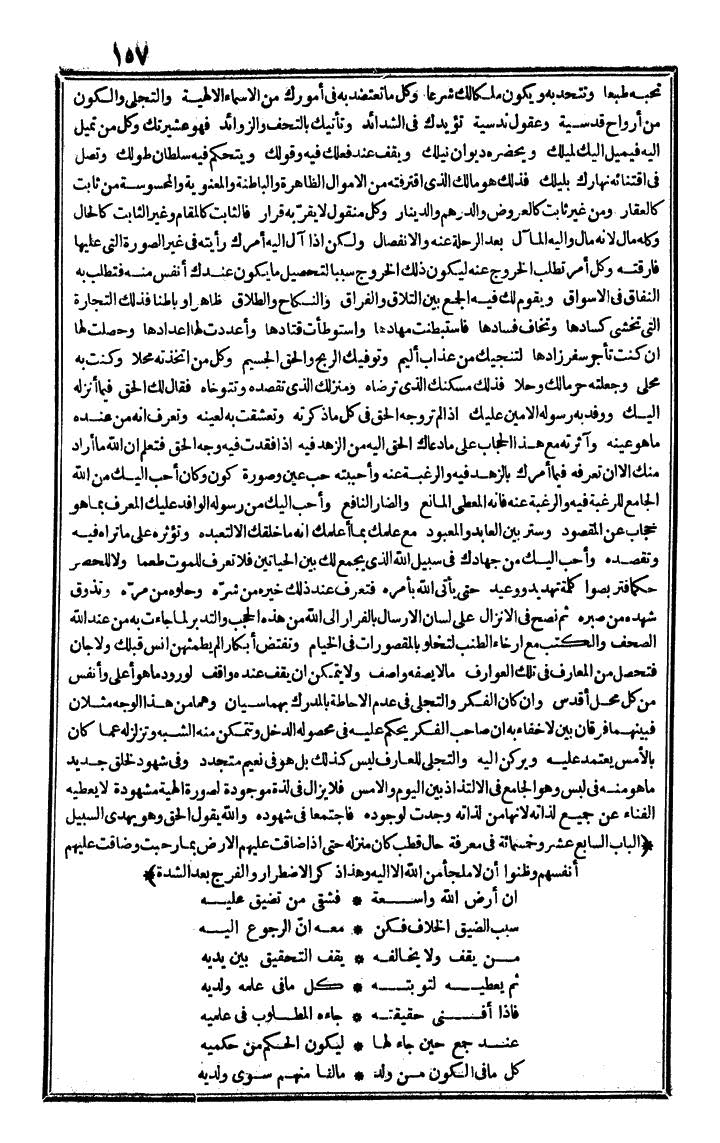 ١٥٧
تحبه طبعا وتتحد به ويكون ملكالك شرعا وكل ما تعتضد به فى أمورك من الاسماء الالهية والتجلى والكون
من أرواح قدسية وعقول ندسية تؤيدك فى الشدائد وتأتيك بالتحف والزوائد فهو عشيرتك وكل من تميل
اليه فيميل اليك لميلك ويحضره ديوان نيلك ويقف عند فعلك فيه وقولك ويتحكم فيه سلطان طولك وتصل
فى اقتنائه نهارك بليلك فذلك هو مالك الذى اقترفته من الاموال الظاهرة والباطنة والمعنوية والمحسوسة من ثابت
كالعقار ومن غير ثابت كالعروض والدرهم والدينار وكل منقول لا يقر به قرار فالثابت كالمقام وغير الثابت كالحال
وكله مال لانه مال واليه المآل بعد الرحلة عنه والانفصال ولكن اذا آل اليه أمرك رأيته فى غير الصورة التى عليها
فارقته وكل أمر تطلب الخروج عنه ليكون ذلك الخروج سببا لتحصيل ما يكون عندك أنفس منه فتطلب به
النفاق فى الاسواق ويقوم لك فيه الجمع بين التلاق والفراق والنكاح والطلاق ظاهرا وباطنا فذلك التجارة
التى تخشى كسادها وتخاف فسادها فاستبطنت مهادها واستوطأت قتادها وأعددت لها اعدادها وحصلت لها
ان كنت تأجر سفر زادها لتنجيك من عذاب أليم وتوفيك الربح والحق الجسيم وكل من اتخذته محلا وكنت به
محلى وجعلته حرما لك وحلا فذلك مسكنك الذى ترضاه ومنزلك الذى تقصده وتتوخاه فقال لك الحق فيما أنزله
اليك ووفد به رسوله الامين عليك اذا لم تر وجه الحق فى كل ما ذكرته وتعشقت به لعينه وتعرف انه من عنده
ما هو عينه وآثرته مع هذا الحجاب على ما دعاك الحق اليه من الزهد فيه اذا فقدت فيه وجه الحق فتعلم ان الله ما أراد
منك الا ان تعرفه فيما أمرك بالزهد فيه والرغبة عنه وأحببته حب عين وصورة كون وكان أحب اليك من الله
الجامع للرغبة فيه والرغبة عنه فانه المعطى المانع والضار النافع وأحب اليك من رسوله الوافد عليك المعرف بما هو
حجاب عن المقصود وستر بين العابد والمعبود مع علمك بما أعلمك انه ما خلقك الا لتعبده وتؤثره على ما تراه فيه
وتقصده وأحب اليك من جهادك فى سبيل الله الذى يجمع لك بين الحياتين فلا تعرف للموت طعما ولا للحصر
حكما فتربصوا كلمة تهديد ووعيد حتى يأتى الله بأمره فتعرف عند ذلك خيره من شره وحلوه من مره وتذوق
شهده من صبره ثم نصح فى الانزال على لسان الارسال بالفرار الى الله من هذه الحجب والتدبر لما جاءت به من عند الله
الصحف والكتب مع ارخاء الطنب لتخلو بالمقصورات فى الخيام وتفتض أبكارا لم يطمثهن انس قبلك ولا جان
فتحصل من المعارف فى تلك العوارف ما لا يصفه واصف ولا يتمكن ان يقف عنده واقف لورود ما هو أعلى وأنفس
من كل محل أقدس وان كان الفكر والتجلى فى عدم الاحاطة بالمدرك بهما سيان وهما من هذا الوجه مثلان
فبينهما فرقان بين لا خفاء به ان صاحب الفكر يحكم عليه فى محصوله الدخل وتتمكن منه الشبه وتزلزله عما كان
بالأمس يعتمد عليه ويركن اليه والتجلى للعارف ليس كذلك بل هو فى نعيم متجدد وفى شهود لخلق جديد
ما هو منه فى لبس وهو الجامع فى الالتذاذ بين اليوم والامس فلا يزال فى لذة موجودة لصورة الهية مشهودة لا يعطيه
الفناء عن جميع لذاته لانها من لذاته وجدت لوجوده فاجتمعا فى شهوده والله يقول الحق وهو يهدى السبيل
﴿الباب السابع عشر وخمسمائة فى معرفة حال قطب كان منزله حتى اذا ضاقت عليهم الارض بما رحبت وضاقت عليهم
أنفسهم وظنوا أن لا ملجأ من الله الا اليه وهذا ذكر الاضطرار والفرج بعد الشدة﴾
ان أرض الله واسعة * فشقى من تضيق عليه
سبب الضيق الخلاف فكن * معه انّ الرجوع اليه
من يقف ولا يخالفه * يقف التحقيق بين يديه
ثم يعطيه لتوبته * كل ما فى علمه ولديه
فاذا أفنى حقيقته * جاءه المطلوب فى علميه
عند جمع حين جاء لها * ليكون الحكم من حكميه
كل ما فى الكون من ولد * مالنا منهم سوى ولديه